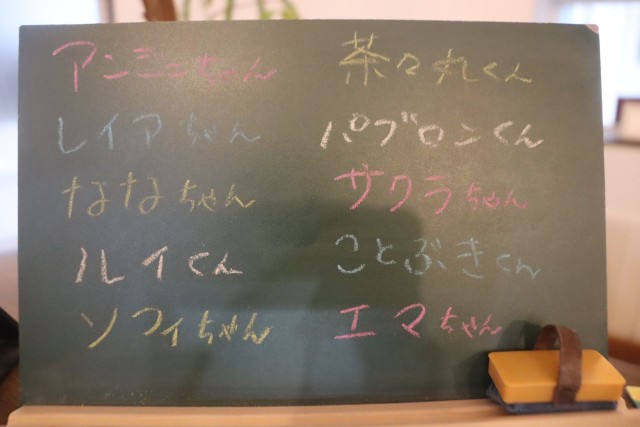 アンミュちゃん
レイアちゃん
ななちゃん
ルイくん
ソフィちゃん
茶々丸くん
パブロンくん
サクラちゃん
ことぶきくん
エマちゃん